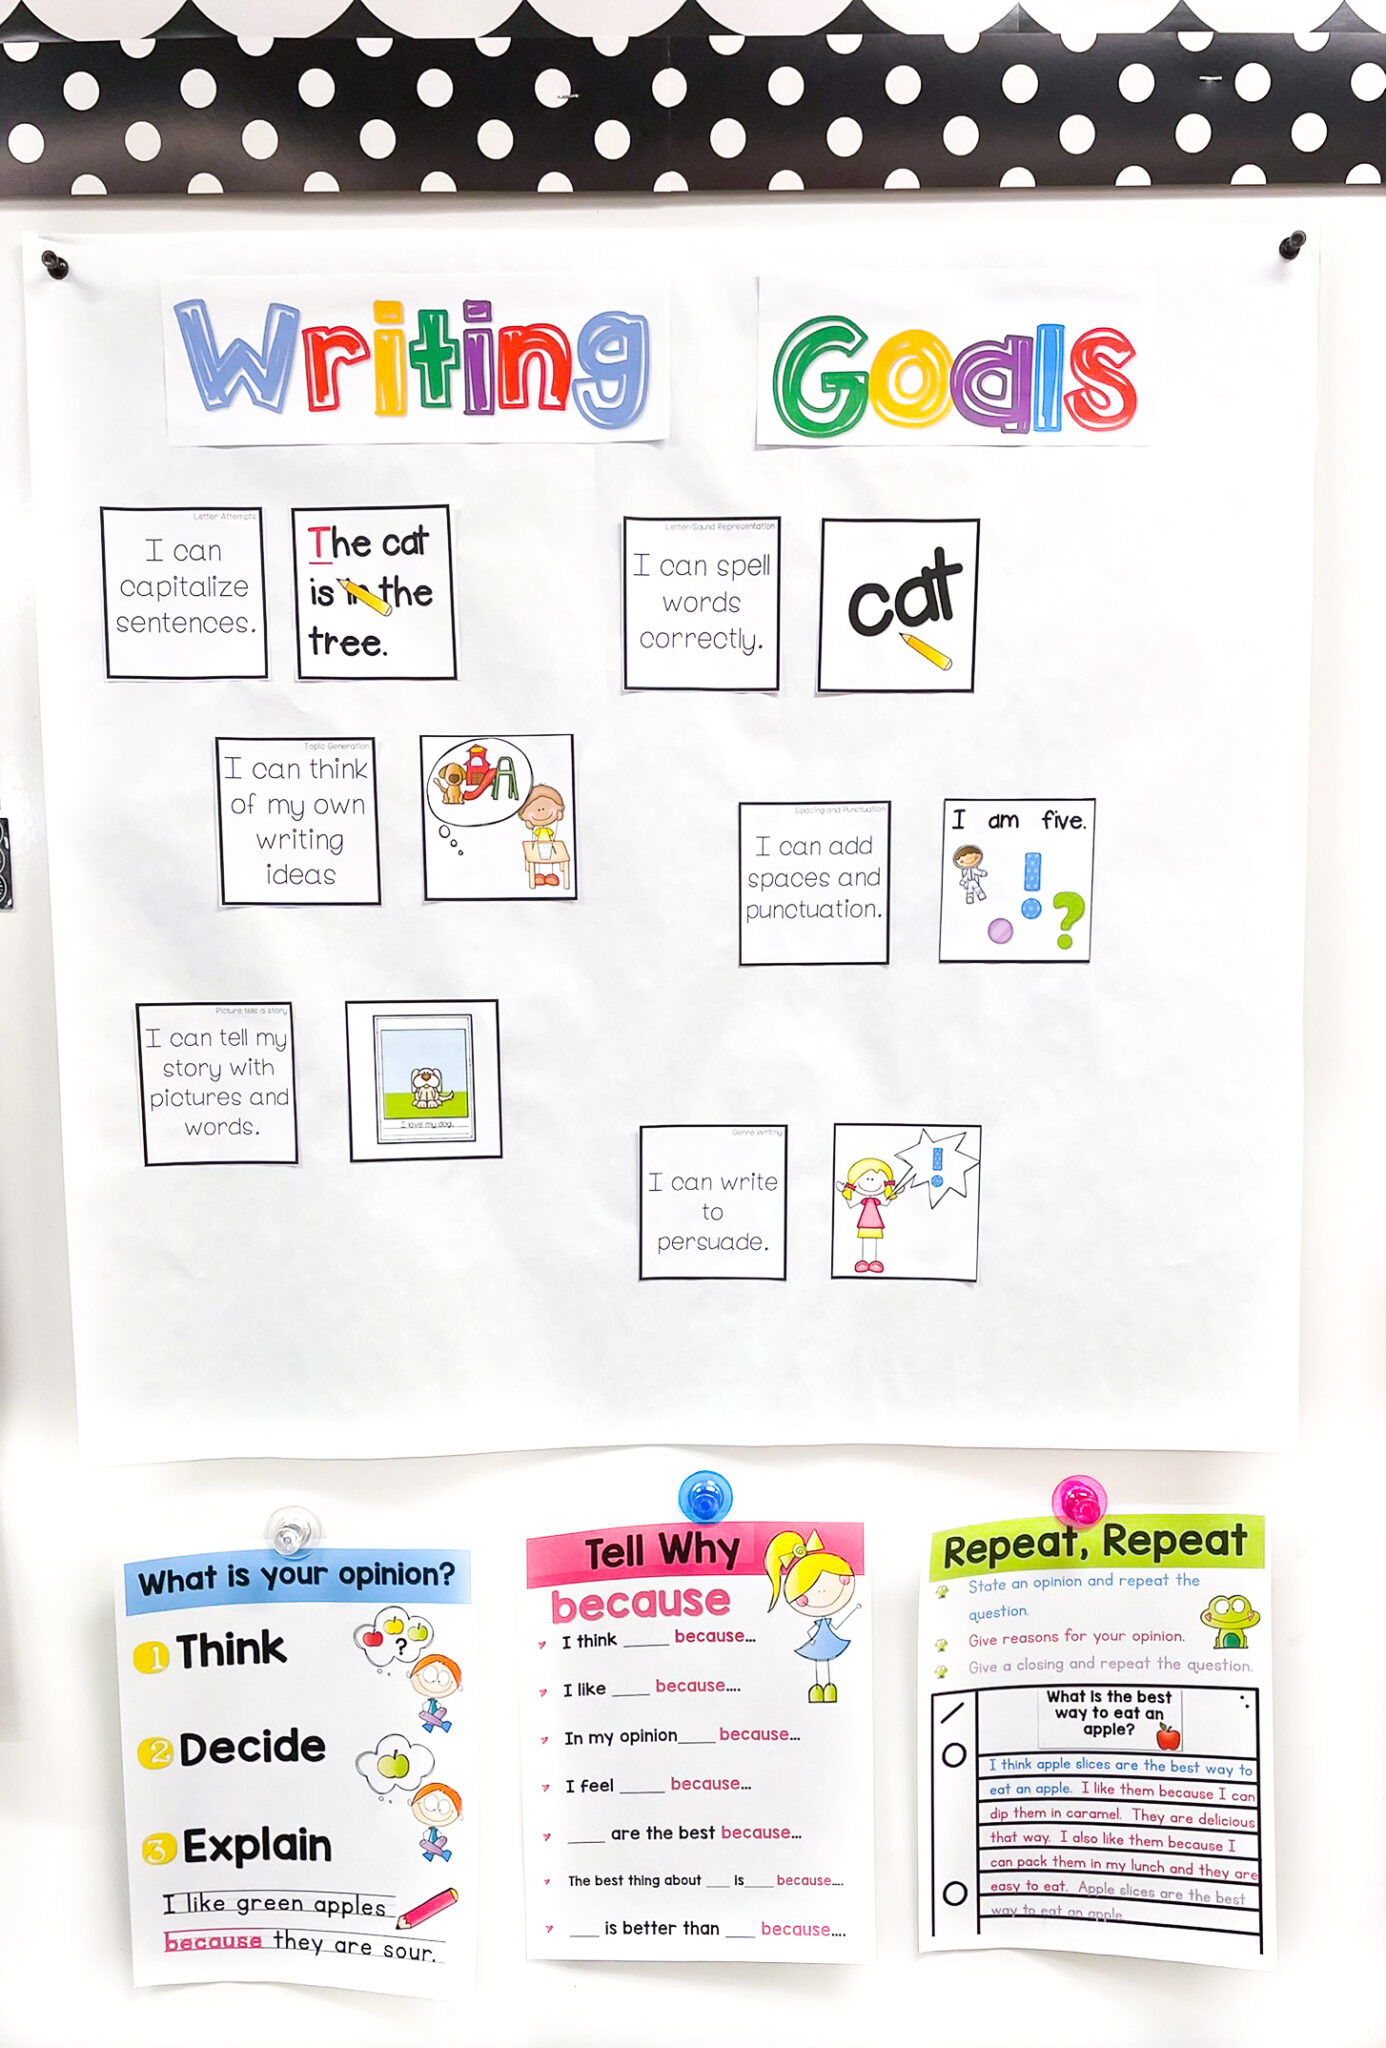 Writing Goals
Letter Attempts
I can
capitalize
sentences.
The cat
is in the
tree.
Letter/Sound Representation
I can spell
words
correctly.
cat
Topic Generation
I can think
of my own
writing
ideas
Spacing and Punctuation
I can add
spaces and
punctuation.
I am five.
!
?
Picture tells a story
I can tell my
story with
pictures and
words.
I love my dog.
Genre Writing
I can write
to
persuade.
!
What is your opinion?
1 Think
?
2 Decide
3 Explain
I like green apples
because they are sour.
Tell Why
because
I think _____ because...
I like ____ because....
In my opinion____ because...
I feel _____ because...
____ are the best because...
The best thing about ___ is____ because....
___ is better than ___ because....
Repeat, Repeat
State an opinion and repeat the
question.
Give reasons for your opinion.
Give a closing and repeat the question.
What is the best
way to eat an
apple?
I think apple slices are the best way to
eat an apple. I like them because I can
dip them in caramel. They are delicious
that way. I also like them because I
can pack them in my lunch and they are
easy to eat. Apple slices are the best
way to eat an apple.